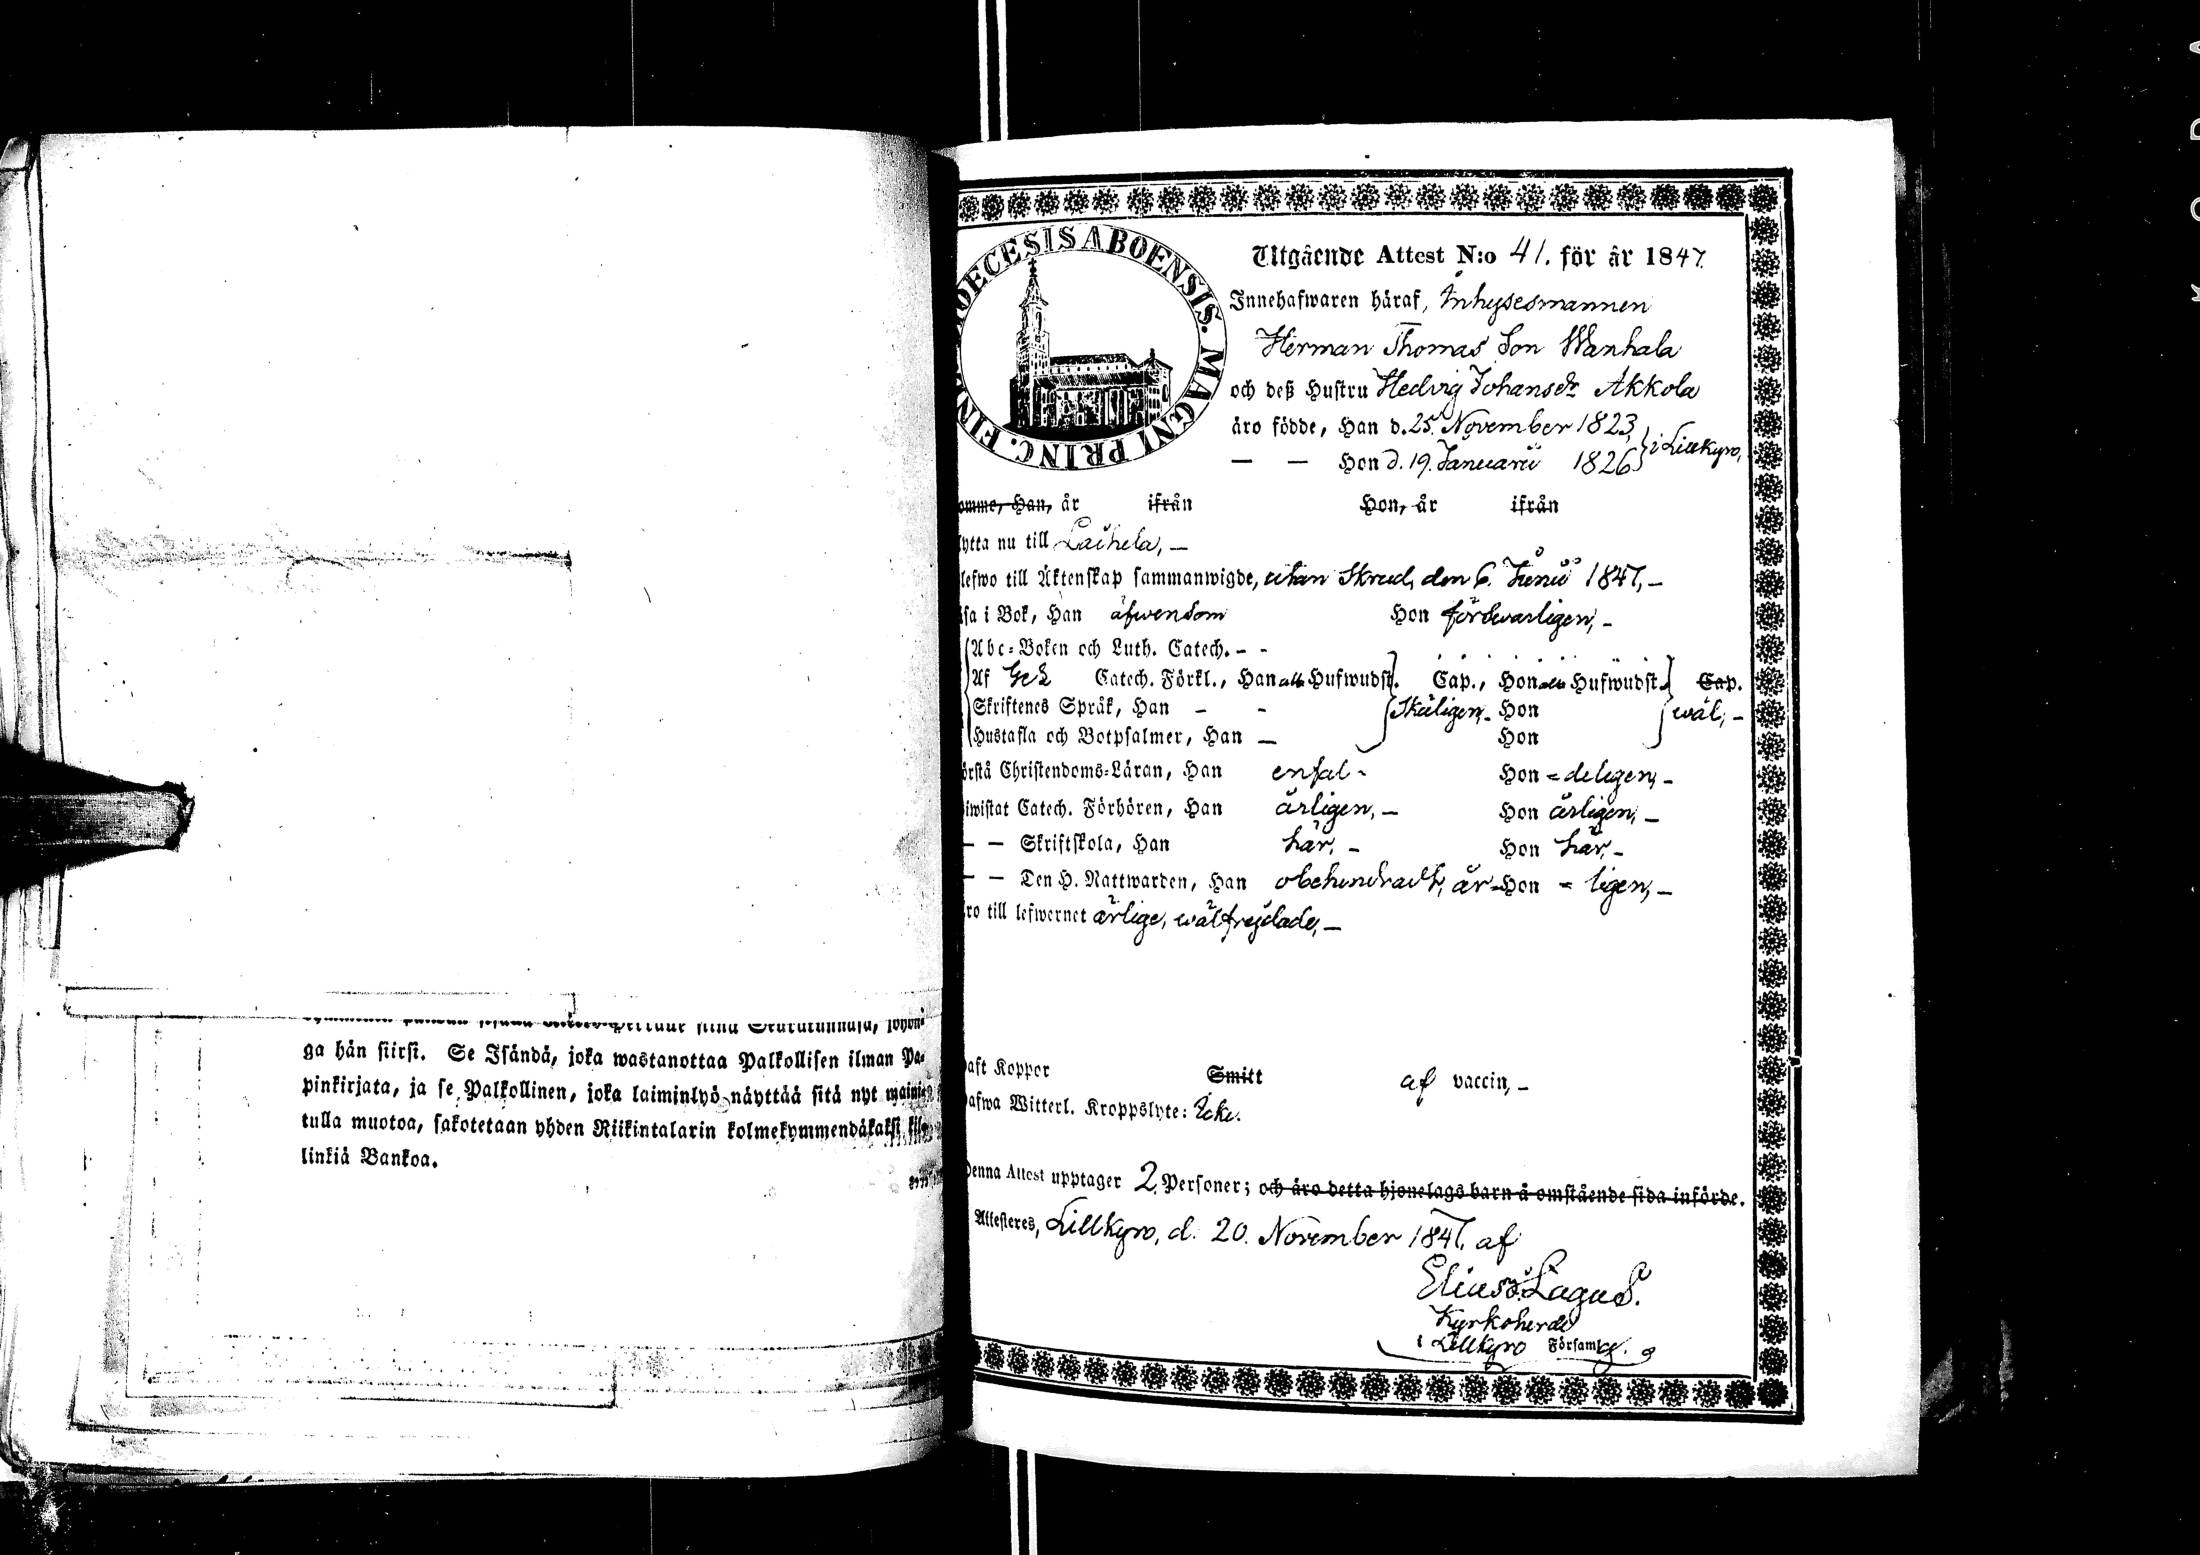 ga hän siirsi. Se Isändä, joka wastanottaa Palkollisen ilman Pa-
pinkirjata, ja se Palkollinen, joka laiminlyö näyttää sitä nyt mainit-
tulla muotoa, sakotetaan yhden Riikintalarin kolmekymmendäkaksi kil-
linkiä Bankoa.
DIOECESIS ABOENSIS. MAGNI PRINC. FINL
Utgående Attest N:o 41. för år 1847.
Innehafwaren häraf, Inhysesmannen
Herman Thomas Son Wanhala
och deß Hustru Hedvig Johansdr Akkola
äro födde, Han d. 25. November 1823,
— — Hon d. 19. Januarii 1826 } i Lillkyro,
omme, Han, år ifrån Hon, år ifrån
lytta nu till Laihela, —
lefwo till Äktenskap sammanwigde, utan Skrud, den 6. Junii 1847, —
äsa i Bok, Han äfwensom Hon försvarligen, —
Abc-Boken och Luth. Catech. - -
Af Catech. Förkl., Han alla Hufwudst. Cap., Hon alla Hufwudst. Cap.
Skriftenes Språk, Han - - Skäligen, - Hon wäl, —
Hustafla och Botpsalmer, Han — Hon
örstå Christendoms-Läran, Han enfal- Hon = deligen, —
iwistat Catech. Förhören, Han årligen, — Hon årligen, —
— — Skriftskola, Han här, — Hon här, —
— — Den H. Nattwarden, Han obehindradt, år- Hon = ligen, —
ro till lefwernet ärlige, wälfrejdade, —
aft Koppor Smitt af vaccin, —
afwa Witterl. Kroppslyte: Icke.
Denna Attest upptager 2. Personer; och äro detta hjonelags barn å omstående sida införde.
Attesteres, Lillkyro, d. 20. November 1847. af
Elias Lagus.
Kyrkoherde
i Lillkyro Församl.